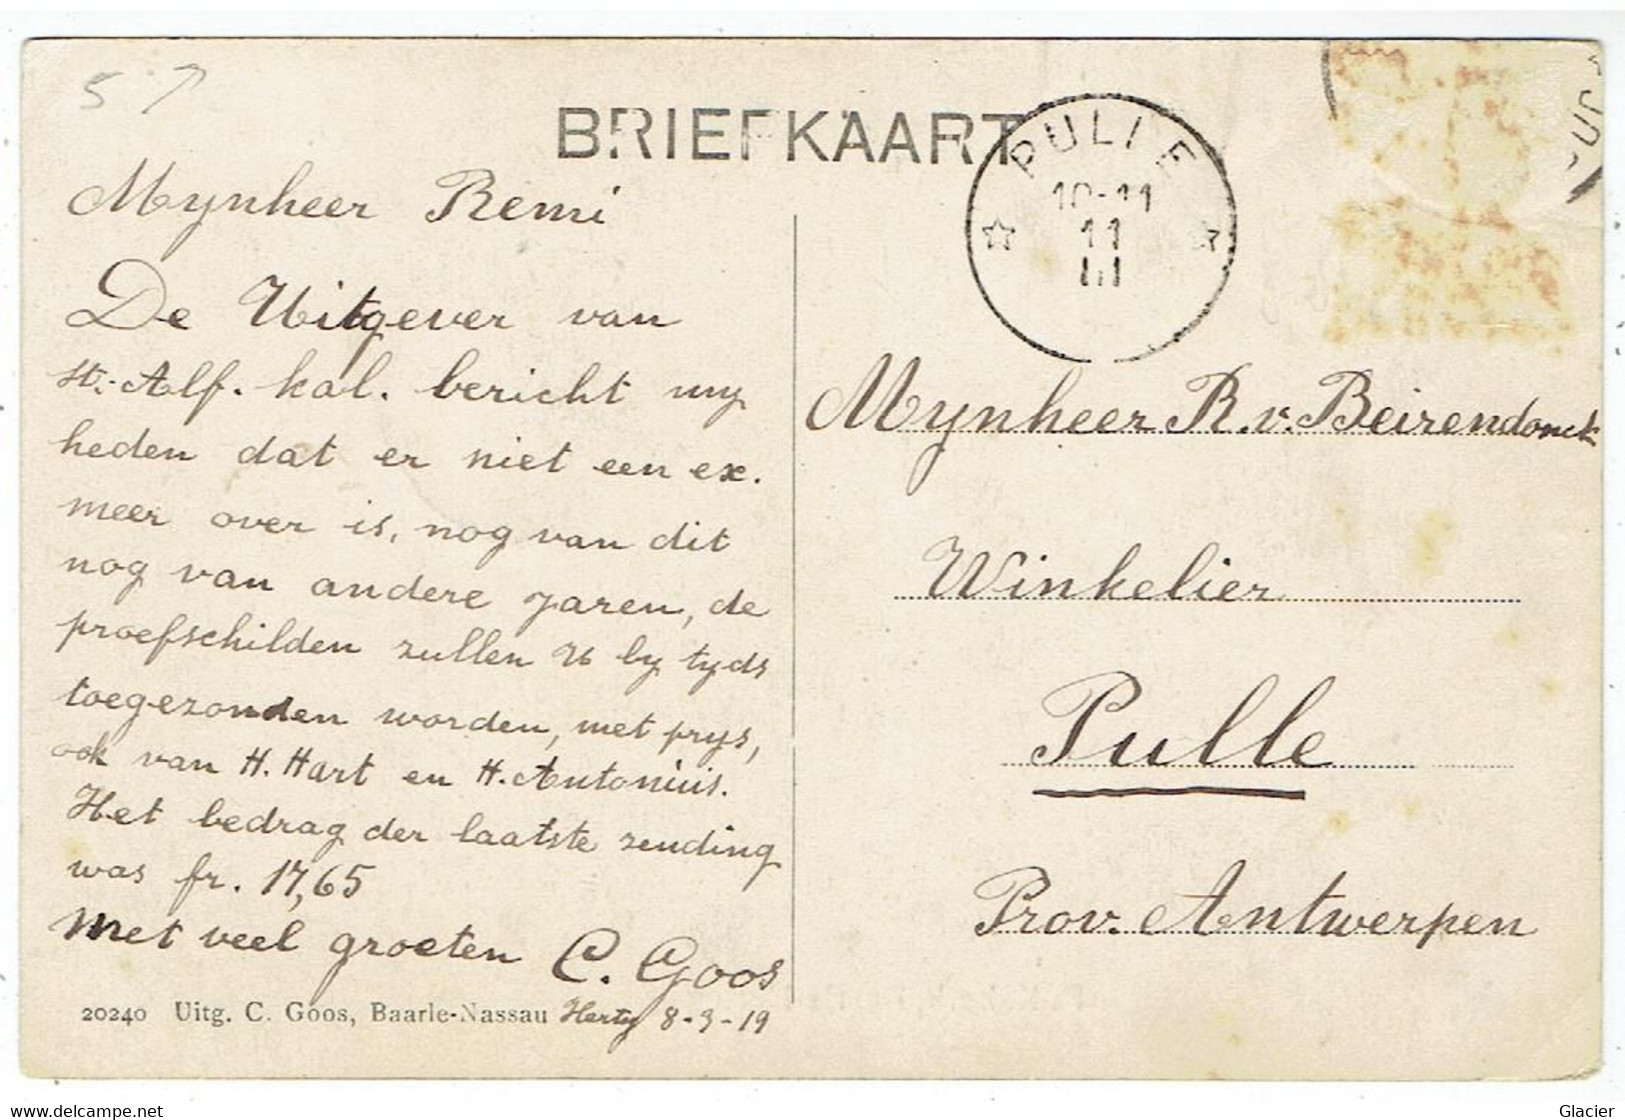 5 7
BRIEFKAART
PULLE
10-11
11
III
Mynheer Remi
De Uitgever van
St.-Alf. kal. bericht my
heden dat er niet een ex.
meer over is, nog van dit
nog van andere jaren, de
proefschilden zullen U by tyds
toegezonden worden, met prys,
ook van H. Hart en H. Antonius.
Het bedrag der laatste zending
was fr. 17,65
Met veel groeten C. Goos
20240 Uitg. C. Goos, Baarle-Nassau 8-3-19
Mynheer R. v. Beirendonck
Winkelier
Pulle
Prov. Antwerpen
www.delcampe.net
Glacier